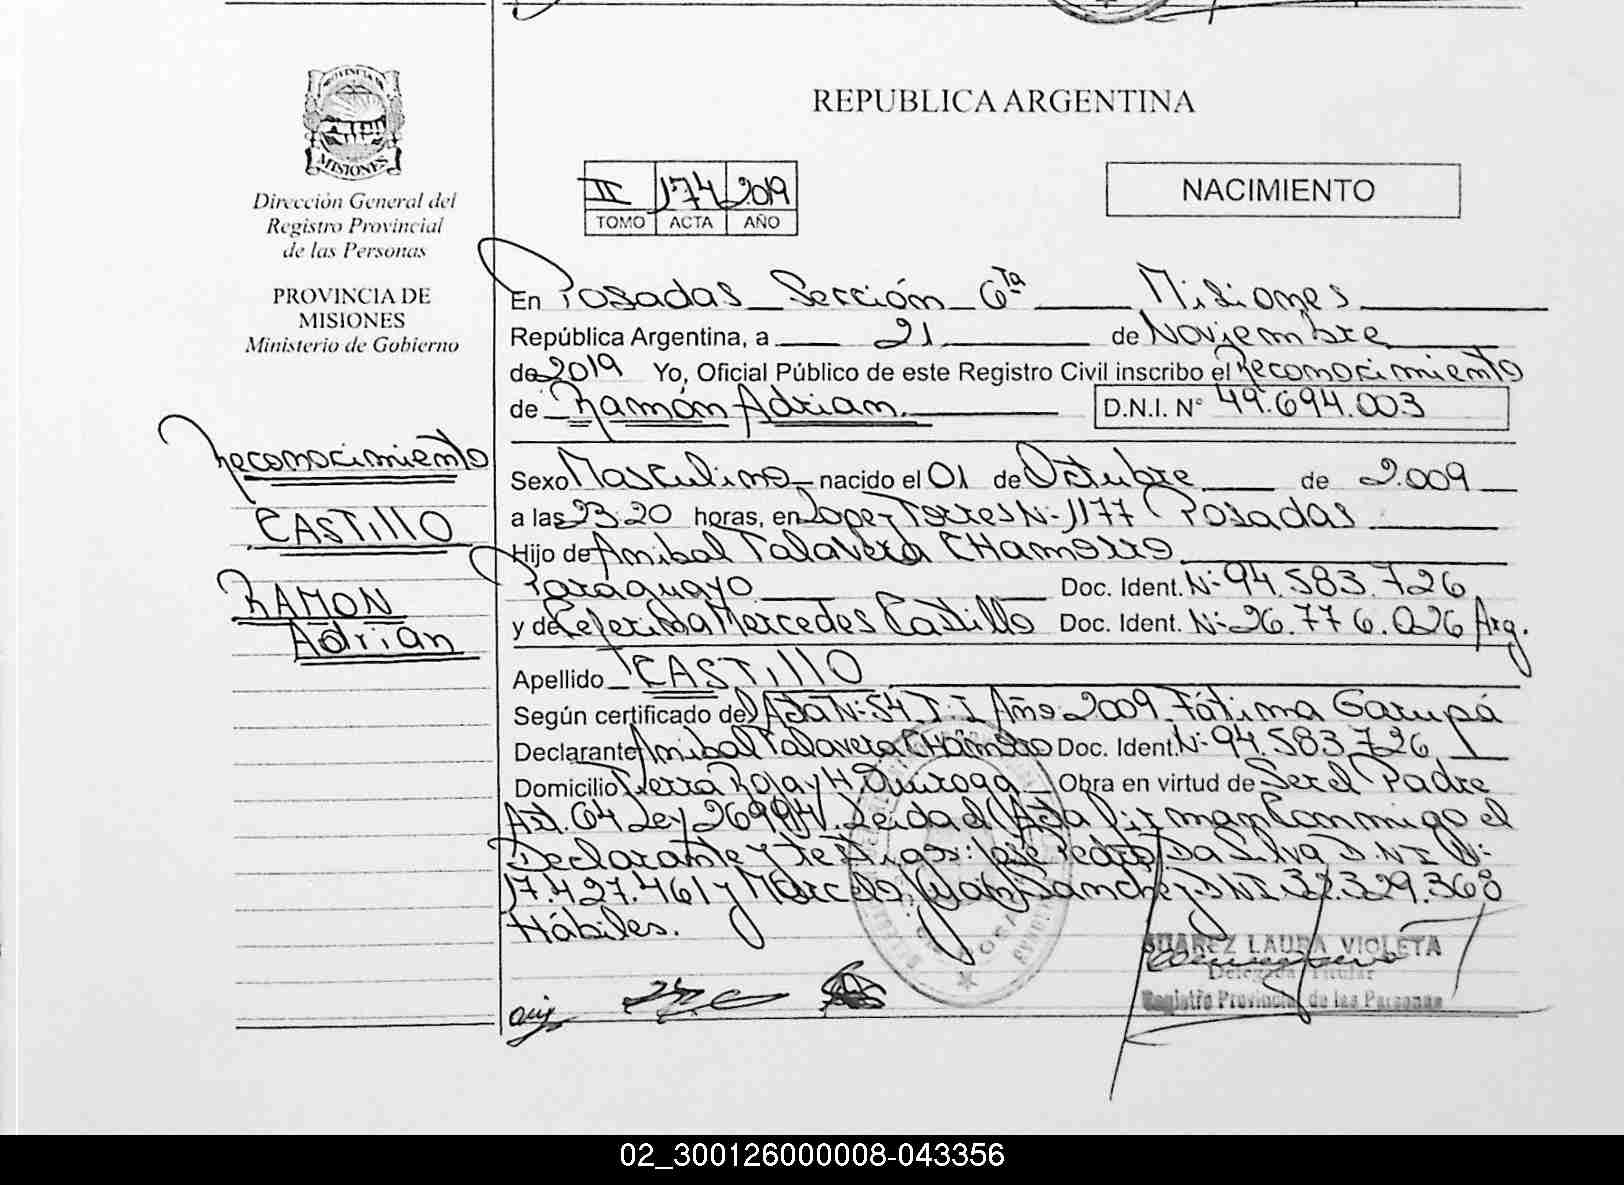 PROVINCIA DE
MISIONES
Dirección General del
Registro Provincial
de las Personas
PROVINCIA DE
MISIONES
Ministerio de Gobierno
Reconocimiento
CASTIllO
RAMON
Adrian
REPUBLICA ARGENTINA
II 174 2019
TOMO ACTA AÑO
NACIMIENTO
En Posadas Sección 6ta Misiones
República Argentina, a 21 de Noviembre
de 2019 Yo, Oficial Público de este Registro Civil inscribo el Reconocimiento
de Ramón Adrian. D.N.I. N° 49.694.003
Sexo Masculino nacido el 01 de Octubre de 2.009
a las 23:20 horas, en Lopez Torres N- 1177 Posadas
Hijo de Anibal Talavera CHamorro
Paraguayo Doc. Ident. N- 94.583.726
y de Ceferina Mercedes Castillo Doc. Ident. N- 26.776.026 Arg.
Apellido CASTIllO
Según certificado del Acta N- 54 T- I Año 2009 Fátima Garupá
Declarante Anibal Talavera CHamorro Doc. Ident. N- 94.583.726
Domicilio Tierra Roja y H. Quiroga Obra en virtud de Ser el Padre
Art. 64 Ley 26994. Leida el Acta Firman Conmigo el
Declarante y Testigos: José Pedro Da Silva D.N.I N-
17.427.461 y Marcelo Iván Sanchez DNI 32.329.368
Hábiles.
SUAREZ LAURA VIOLETA
Delegada Titular
Registro Provincial de las Personas
02_300126000008-043356